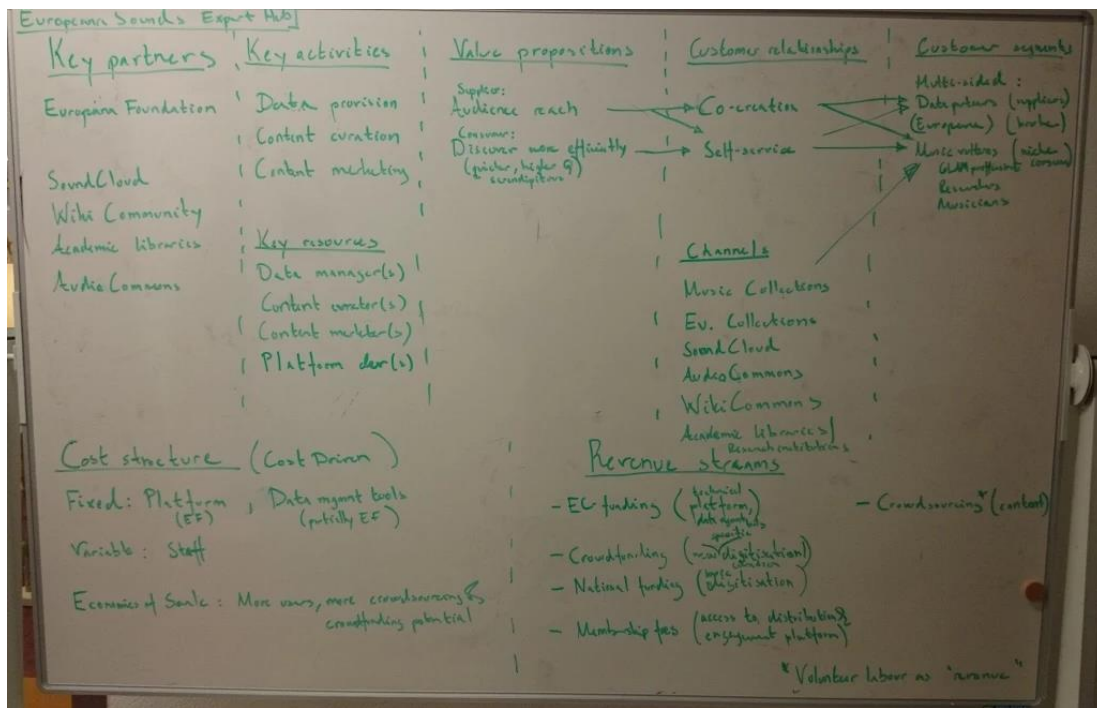 Europeana Sounds Expert Hub
Key partners
Europeana Foundation
SoundCloud
Wiki Community
Academic libraries
AudioCommons
Key activities
Data provision
Content curation
Content marketing
Key resources
Data manager(s)
Content curator(s)
Content marketer(s)
Platform dev(s)
Value propositions
Supplier:
Audience reach
Consumer:
Discover more efficiently
(quicker, higher Q
Customer relationships
Co-creation
Self-service
Channels
Music Collections
Eu. Collections
SoundCloud
AudioCommons
WikiCommons
Academic libraries/
Research institutions
Customer segments
Multi-sided:
Data partners (suppliers)
(Europeana) (broker)
Music (niche
Researchers
Musicians
Cost structure (Cost Driven)
Fixed: Platform, Data mgmt tools
(EF) (partially EF)
Variable: Staff
Economies of Scale: More users, more crowdsourcing &
crowdfunding potential
Revenue streams
- EC funding (technical
platform,
data mgmt
- Crowdfunding (specific
digitisation)
- National funding (basic
digitisation)
- Membership fees (access to distribution &
engagement platform)
- Crowdsourcing* (content)
* Volunteer labour as "revenue"